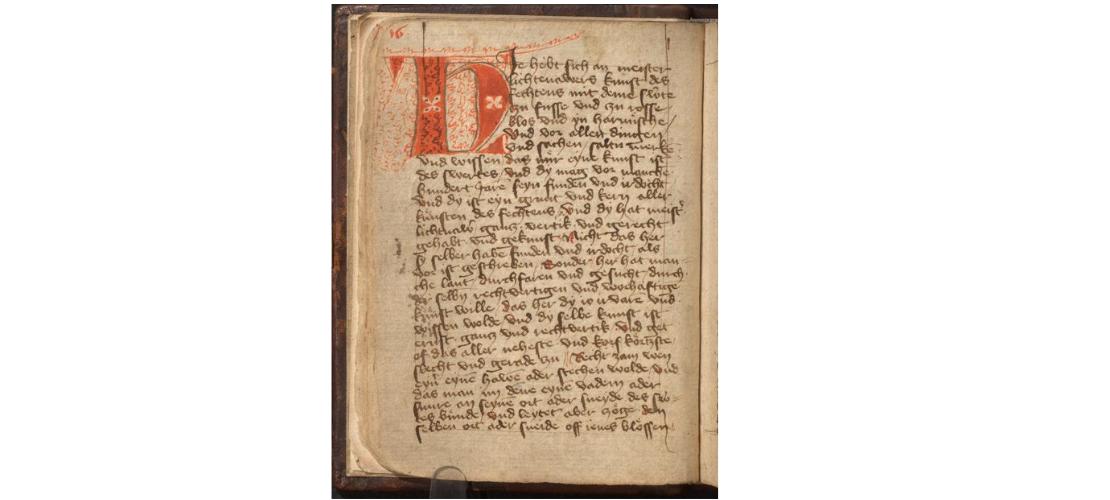 16
Hie hebt sich an meister
lichtenawers kunst des
fechtens mit deme swte
czu fusse und czu rosse
blos und yn harnüsche
Und vor allen dingen
und sachen saltu merke
und wissen das nür eyne kunst ist
des swertes und dy mag vor manche
hundert jaren seyn funden und irdocht
und dy ist eyn grunt und kern aller
künsten des fechtens und dy hat meist
lichtnaw ganz vertik und gerecht
gehabt und gekunst Nicht das her
sy selber habe funden und irdocht als
vor ist geschreben Sonder her hat man
che lant durchfaren und gesucht durch
der selbñ rechtvertigen und worhaftige
kunst wille das her dy io irvare und
wissen wolde und dy selbe kunst ist
ernst ganz und rechtvertik Und get
of das aller neheste und korczste
slecht und gerade czu Recht zam wen
eyñ eyne hawe ader stechen wolde Und
das man im dene eyne vadem ader
snure an seyne ort ader sneyde des sw
tes bünde und leytet aber czöge den
selben ort ader sneide off ienes blössen